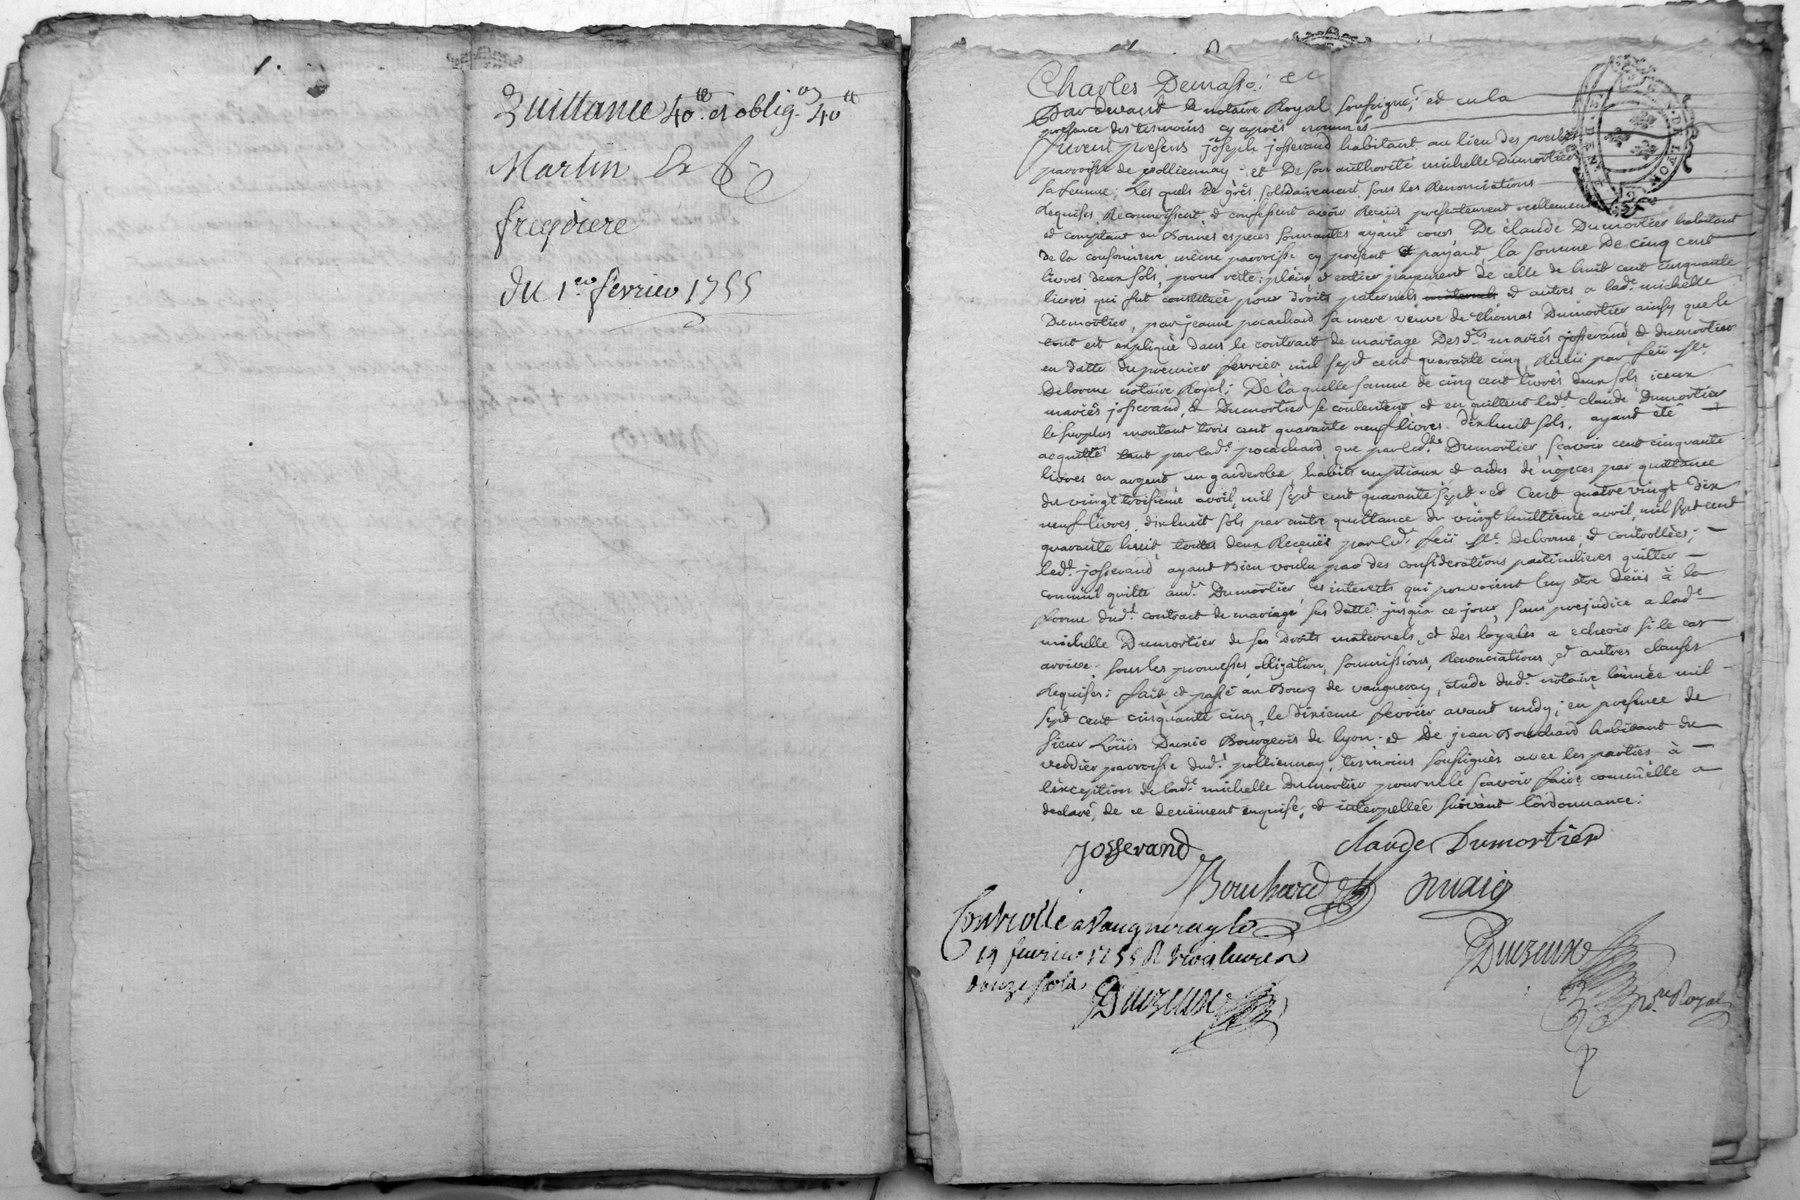 Quittance 40.tt et oblig.on 40tt
Martin
fregdiere
du 1.er fevrier 1755
Charles Demasso: &c
Pardevant le notaire Royal soussigné, et en la
presence des temoins cy après nommés
furent presens joseph josserand habitant au lieu des
parroisse de pollionnay. et de son authorité michelle Dumortier
sa femme; Les quels de grés solidairement sous les Renonciations
Requises, Reconnoissent et confessent avoir Receus presentement reellement
et comptant en bonnes especes sonnantes ayant cours De claude Dumortier habitant
de la même parroisse cy present et payant, la somme De cinq cent
livres deux sols; pour reste, plein et entier payement de celle de huit cent cinquante
livres qui fut constituée pour droits paternels maternels et autres a lad.e michelle
Dumortier, par jeanne pocachard sa mere veuve de thomas Dumortier ainsy que le
tout est expliqué dans le contract de mariage Desd.ts mariés josserand, et dumortier
en datte du premier fevrier mil sept cent quarante cinq, Receu par feu M.e
Delorme notaire Royal; De la quelle somme de cinq cent livres deux sols, iceux
mariés josserand, et Dumortier se contentent, et en quittent led.t claude Dumortier
le surplus montant trois cent quarante neuf livres dixhuit sols, ayant eté
acquitté tant par lad.e pocachard, que par led.t Dumortier, scavoir cent cinquante
livres en argent, un garderobe, habits nuptiaux et aides de nopces par quittance
du vingt troisieme avril, mil sept cent quarante sept, et Cent quatre vingt dix
neuf livres, dixhuit sols par autre quittance du vingt huitieme avril, mil sept cent
quarante huit, toutes deux Receues par led.t feu M.e Delorme, et controllées;
led.t josserand ayant bien voulu par des considerations particulieres quitter
comm'il quitte aud.t Dumortier les interets qui pouvoient luy etre deüs à la
forme dud.t contract de mariage sus datté jusqu'a ce jour, sans prejudice a lad.e
michelle Dumortier de ses droits maternels, et des loyales a echeoir si le cas
arrive. Sous les promesses, obligation, soumissions, Renonciations, et autres clauses
Requises: fait et passé au Bourg de vaugneray, etude dud.t notaire, l'année mil
sept cent cinquante cinq, le dixieme fevrier avant midy; en presence de
sieur Loüis Bourgeois de lyon, et De jean Bouchard habitant du
verdier parroisse dud.t pollionnay, temoins soussignés avec les parties à
l'exception de lad.e michelle Dumortier pour ne le scavoir faire comm'elle a
declaré, de ce deuement enquise, et interpellée suivant l'ordonnance:
Josserand claude Dumortier
Bouchard
Controllé a Vaugneray le
19 fevrier 1755 R trois livres
douze sols
Duvzeux
Duvzeux
n.re Royal